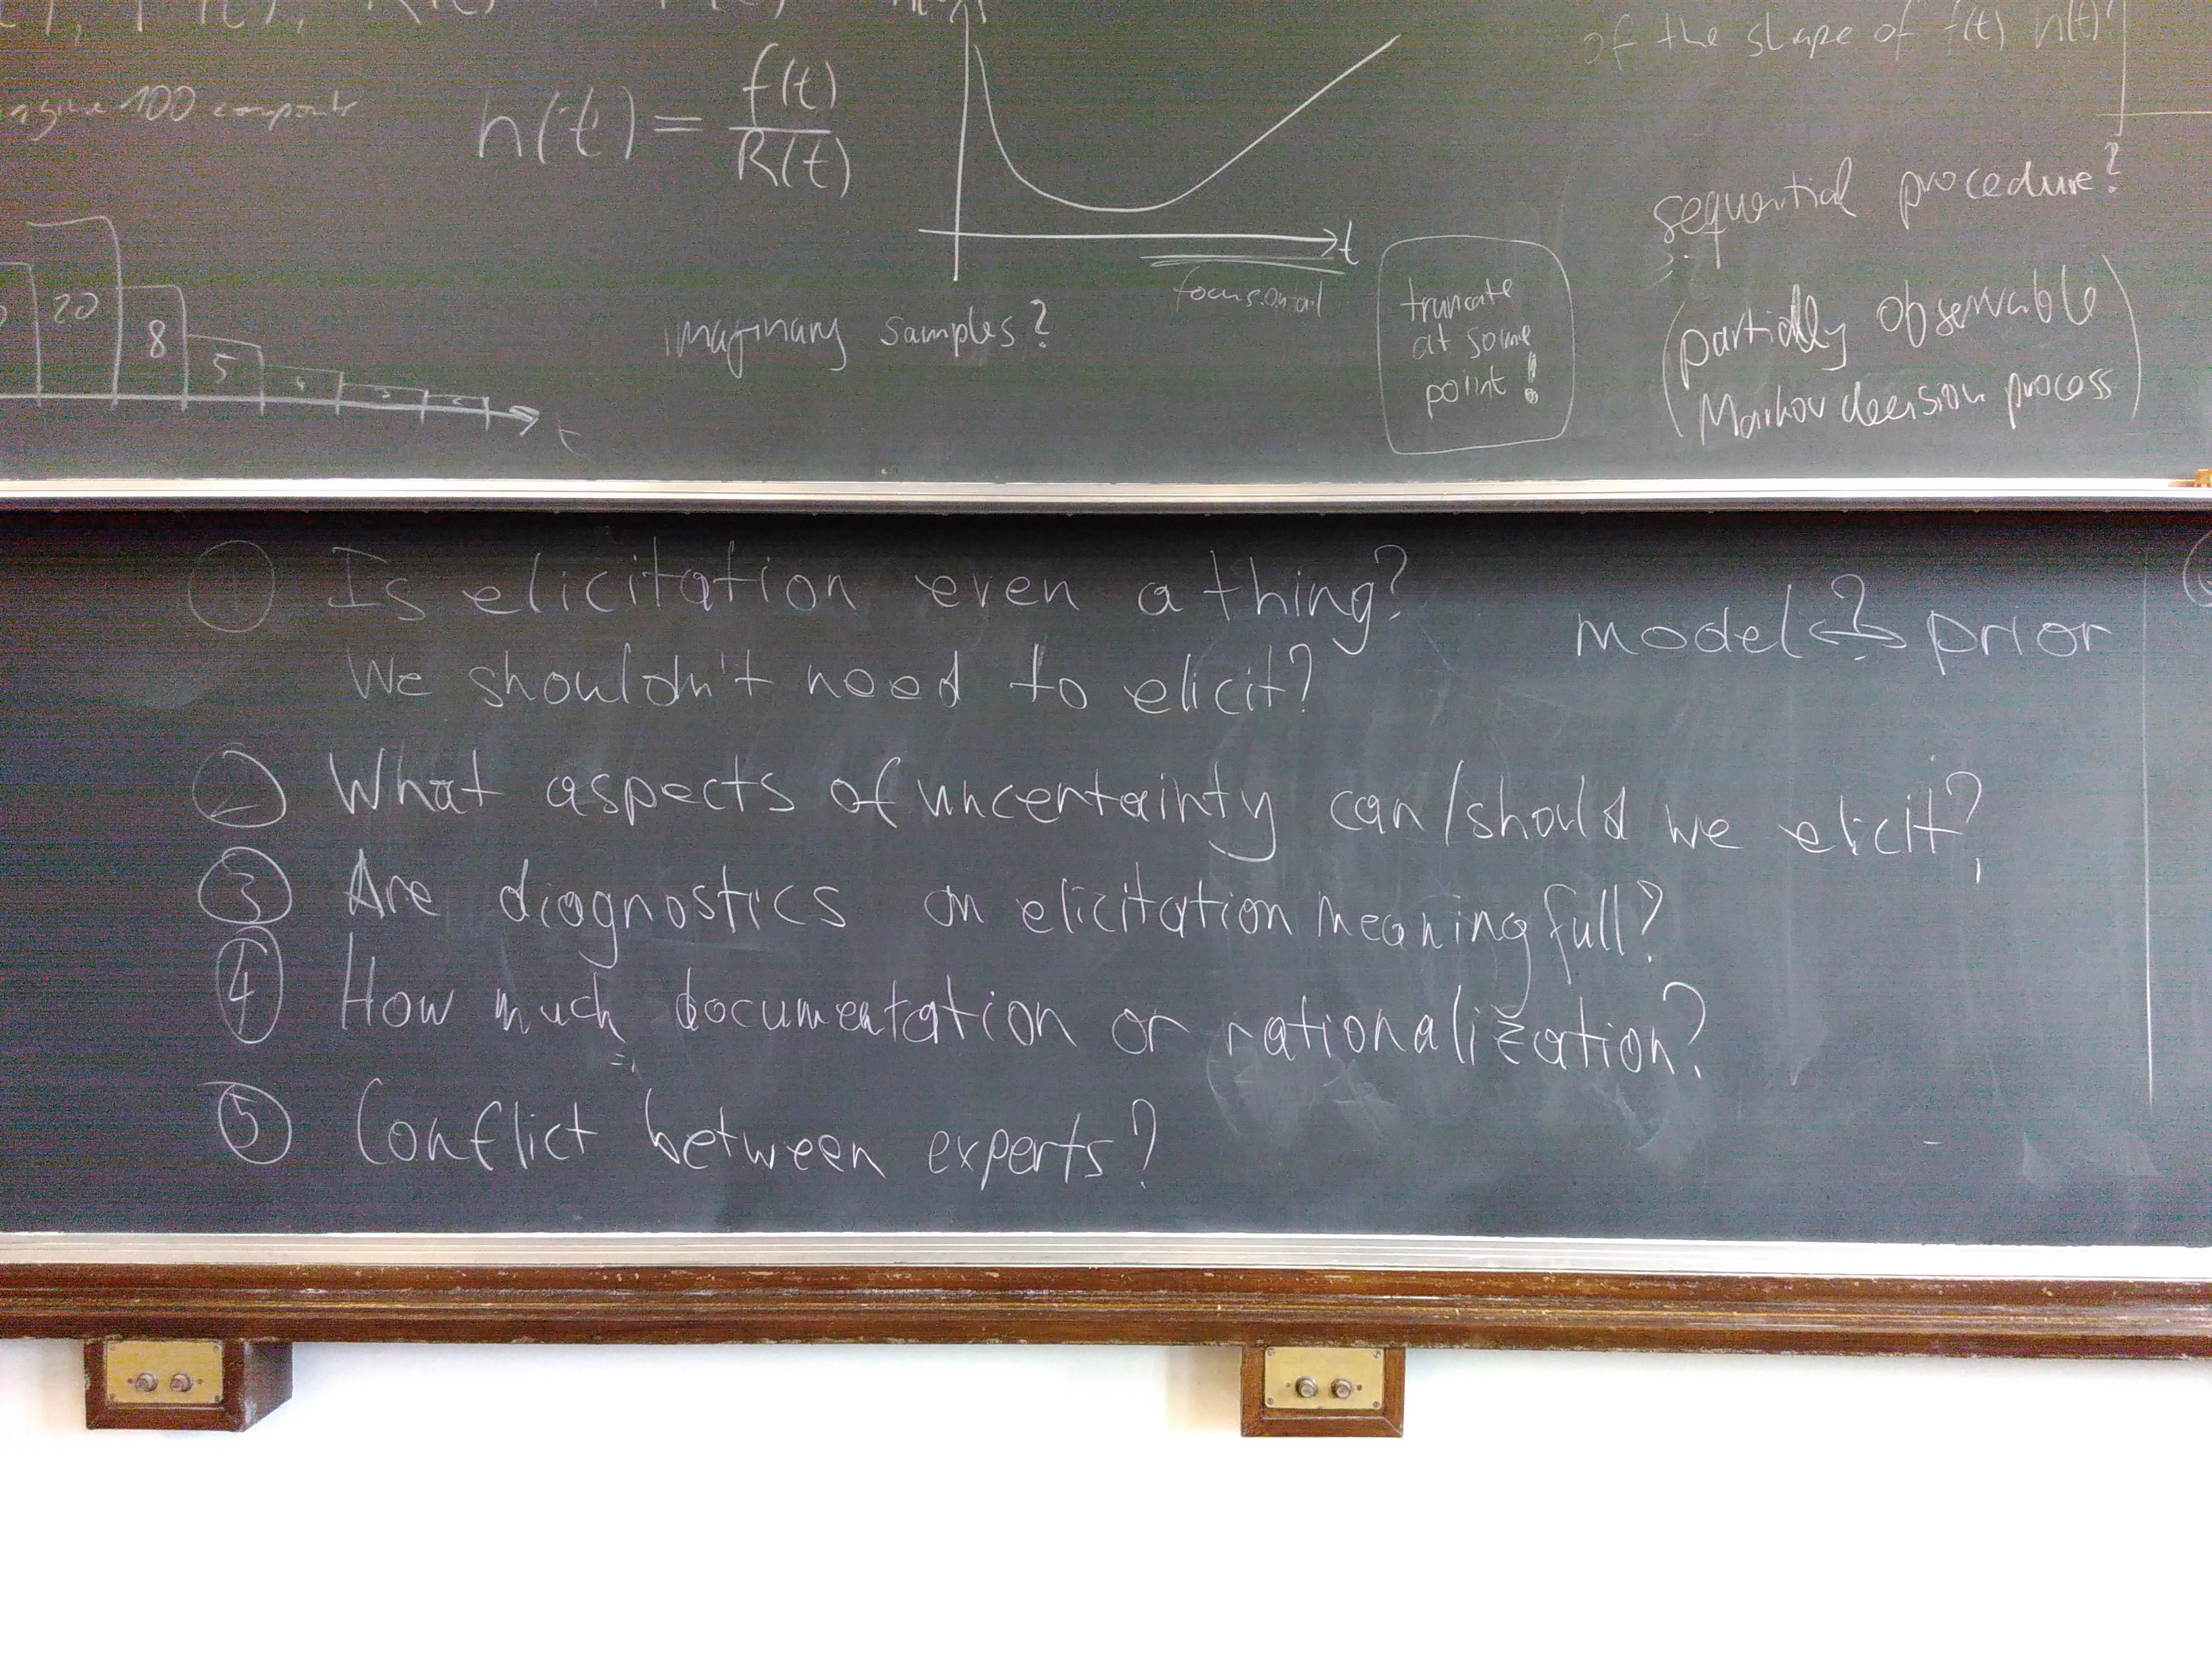 of the shape of f(t) h(t)?
100
h(t) = f(t) / R(t)
t
sequential procedure?
20
8
5
4
3
t
imaginary samples?
focus on tail
truncate
at some
point!
(partially observable
Markov decision process)
① Is elicitation even a thing?
We shouldn't need to elicit?
model ↔ prior
?
② What aspects of uncertainty can/should we elicit?
③ Are diagnostics on elicitation meaningfull?
④ How much documentation or rationalization?
⑤ Conflict between experts?